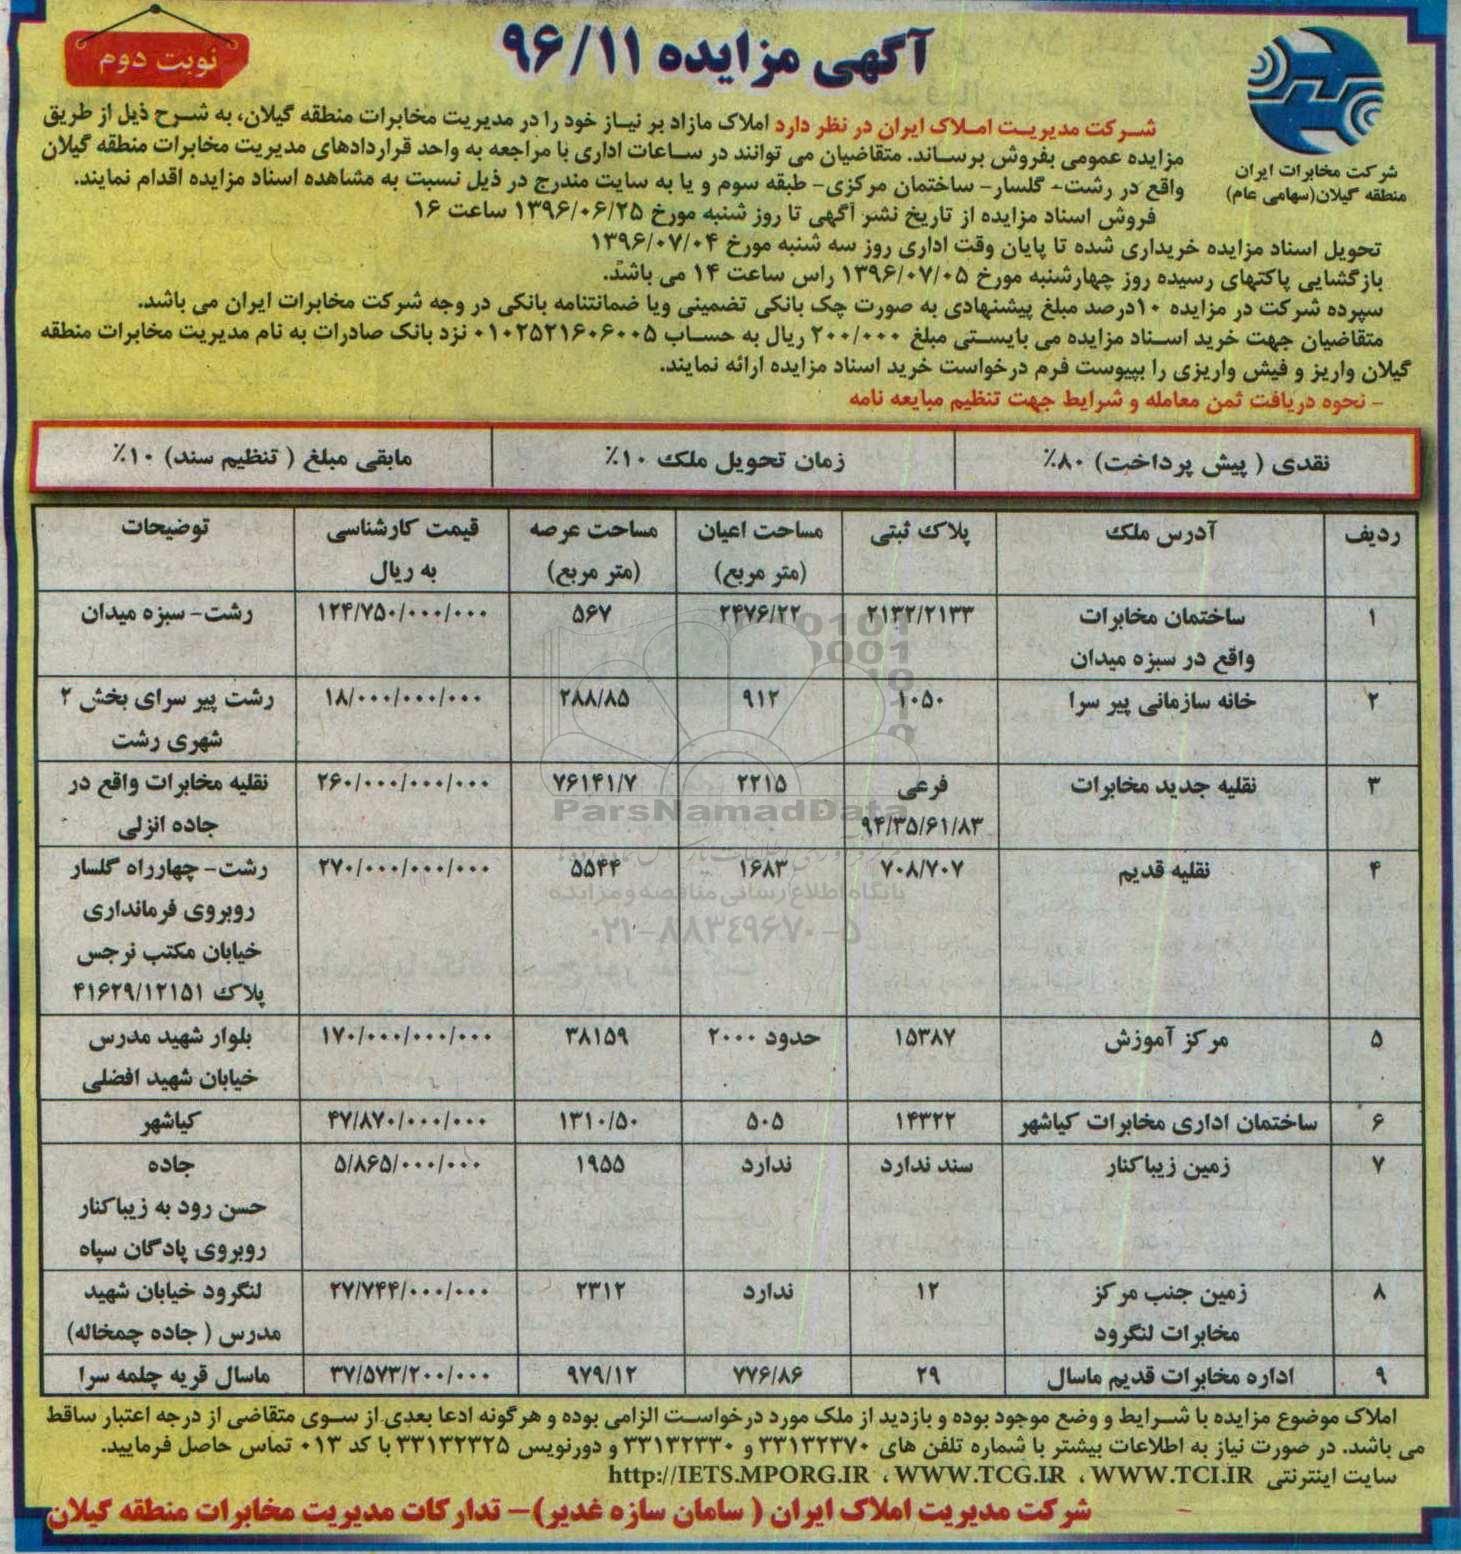 آگهی مزایده ۹۶/۱۱
نوبت دوم
شرکت مخابرات ایران
منطقه گیلان(سهامی عام)
شرکت مدیریت املاک ایران در نظر دارد املاک مازاد بر نیاز خود را در مدیریت مخابرات منطقه گیلان، به شرح ذیل از طریق
مزایده عمومی بفروش برساند. متقاضیان می توانند در ساعات اداری با مراجعه به واحد قراردادهای مدیریت مخابرات منطقه گیلان
واقع در رشت- گلسار- ساختمان مرکزی- طبقه سوم و یا به سایت مندرج در ذیل نسبت به مشاهده اسناد مزایده اقدام نمایند.
فروش اسناد مزایده از تاریخ نشر آگهی تا روز شنبه مورخ ۱۳۹۶/۰۶/۲۵ ساعت ۱۶
تحویل اسناد مزایده خریداری شده تا پایان وقت اداری روز سه شنبه مورخ ۱۳۹۶/۰۷/۰۴
بازگشایی پاکتهای رسیده روز چهارشنبه مورخ ۱۳۹۶/۰۷/۰۵ راس ساعت ۱۴ می باشد.
سپرده شرکت در مزایده ۱۰درصد مبلغ پیشنهادی به صورت چک بانکی تضمینی ویا ضمانتنامه بانکی در وجه شرکت مخابرات ایران می باشد.
متقاضیان جهت خرید اسناد مزایده می بایستی مبلغ ۲۰۰/۰۰۰ ریال به حساب ۰۱۰۲۵۲۱۶۰۶۰۰۵ نزد بانک صادرات به نام مدیریت مخابرات منطقه
گیلان واریز و فیش واریزی را بپیوست فرم درخواست خرید اسناد مزایده ارائه نمایند.
- نحوه دریافت ثمن معامله و شرایط جهت تنظیم مبایعه نامه
نقدی ( پیش پرداخت) ۸۰٪ زمان تحویل ملک ۱۰٪ مابقی مبلغ ( تنظیم سند) ۱۰٪
ردیف آدرس ملک پلاک ثبتی مساحت اعیان مساحت عرصه قیمت کارشناسی توضیحات
(متر مربع) (متر مربع) به ریال
۱ ساختمان مخابرات ۲۱۳۲/۲۱۳۳ ۲۴۷۶/۲۲ ۵۶۷ ۱۲۴/۷۵۰/۰۰۰/۰۰۰ رشت- سبزه میدان
واقع در سبزه میدان
۲ خانه سازمانی پیر سرا ۱۰۵۰ ۹۱۲ ۲۸۸/۸۵ ۱۸/۰۰۰/۰۰۰/۰۰۰ رشت پیر سرای بخش ۲
شهری رشت
۳ نقلیه جدید مخابرات فرعی ۲۲۱۵ ۷۶۱۴۱/۷ ۲۶۰/۰۰۰/۰۰۰/۰۰۰ نقلیه مخابرات واقع در
۹۴/۳۵/۶۱/۸۳ جاده انزلی
۴ نقلیه قدیم ۷۰۸/۷۰۷ ۱۶۸۳ ۵۵۴۴ ۲۷۰/۰۰۰/۰۰۰/۰۰۰ رشت- چهارراه گلسار
روبروی فرمانداری
خیابان مکتب نرجس
پلاک ۴۱۶۲۹/۱۲۱۵۱
۵ مرکز آموزش ۱۵۳۸۷ حدود ۲۰۰۰ ۳۸۱۵۹ ۱۷۰/۰۰۰/۰۰۰/۰۰۰ بلوار شهید مدرس
خیابان شهید افضلی
۶ ساختمان اداری مخابرات کیاشهر ۱۴۳۲۲ ۵۰۵ ۱۳۱۰/۵۰ ۴۷/۸۷۰/۰۰۰/۰۰۰ کیاشهر
۷ زمین زیباکنار سند ندارد ندارد ۱۹۵۵ ۵/۸۶۵/۰۰۰/۰۰۰ جاده
حسن رود به زیباکنار
روبروی پادگان سپاه
۸ زمین جنب مرکز ۱۲ ندارد ۲۳۱۲ ۲۷/۷۴۴/۰۰۰/۰۰۰ لنگرود خیابان شهید
مخابرات لنگرود مدرس ( جاده چمخاله)
۹ اداره مخابرات قدیم ماسال ۲۹ ۷۷۶/۸۶ ۹۷۹/۱۲ ۳۷/۵۷۳/۲۰۰/۰۰۰ ماسال قریه چلمه سرا
ParsNamadData
پایگاه اطلاع رسانی مناقصه و مزایده
۰۲۱-۸۸۳۴۹۶۷۰-۵
املاک موضوع مزایده با شرایط و وضع موجود بوده و بازدید از ملک مورد درخواست الزامی بوده و هرگونه ادعا بعدی از سوی متقاضی از درجه اعتبار ساقط
می باشد. در صورت نیاز به اطلاعات بیشتر با شماره تلفن های ۳۳۱۳۲۳۷۰ و ۳۳۱۳۲۳۳۰ و دورنویس ۳۳۱۳۲۳۲۵ با کد ۰۱۳ تماس حاصل فرمایید.
سایت اینترنتی http://IETS.MPORG.IR ، WWW.TCG.IR ، WWW.TCI.IR
شرکت مدیریت املاک ایران ( سامان سازه غدیر)- تدارکات مدیریت مخابرات منطقه گیلان